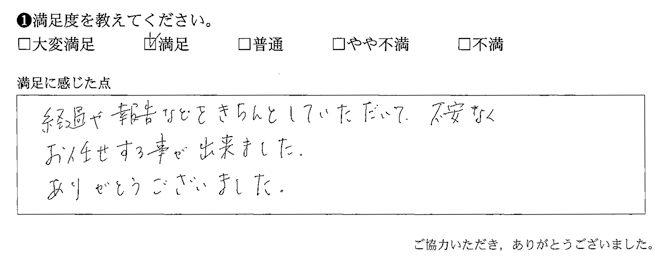 ❶満足度を教えてください。
□大変満足 ☑満足 □普通 □やや不満 □不満
満足に感じた点
経過や報告などをきちんとしていただいて、不安なく
お任せする事が出来ました.
ありがとうございました.
ご協力いただき，ありがとうございました。